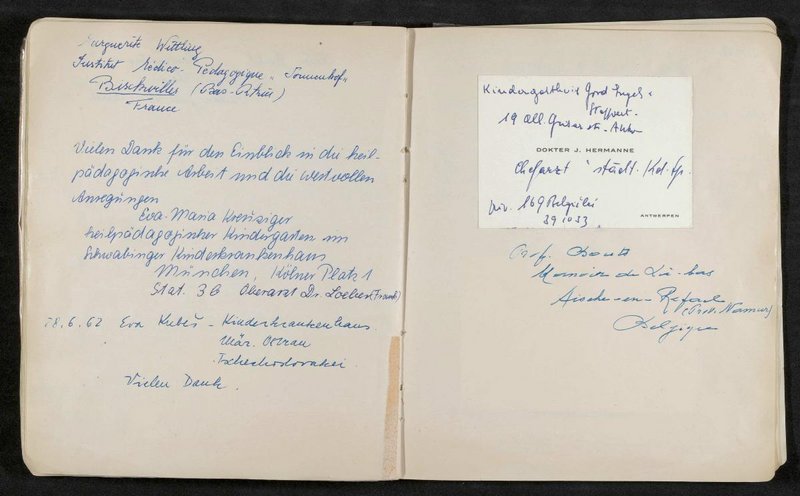 Marguerite Wittling
Institut Médico-Pédagogique "Sonnenhof"
Bischwiller (Bas-Rhin)
France
Vielen Dank für den Einblick in die heil-
pädagogische Arbeit und die wertvollen
Anregungen
Eva-Maria
heilpädagogischer Kindergarten im
Schwabinger Kinderkrankenhaus
München, Kölner Platz 1
Stat. 3G Oberarzt Dr. Loeben
18.6.62 Eva Kubeš - Kinderkrankenhaus
Mär. Ostrau
Tschechoslovakei
Vielen Dank.
19
DOKTER J. HERMANNE
Chefarzt städt.
169 Belgiëlei
391033
ANTWERPEN
Prof.
de
Aische-en-Refail
(Prov. Namur)
Belgique